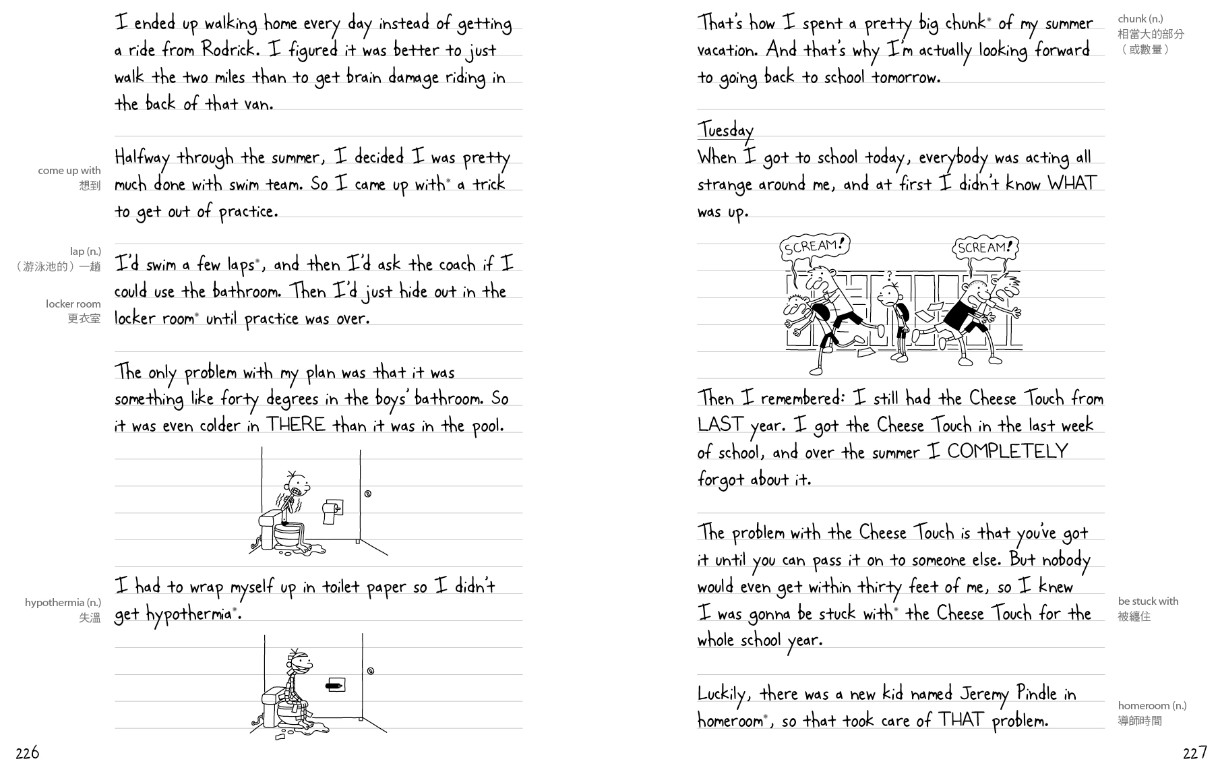 I ended up walking home every day instead of getting
a ride from Rodrick. I figured it was better to just
walk the two miles than to get brain damage riding in
the back of that van.
come up with
想到
Halfway through the summer, I decided I was pretty
much done with swim team. So I came up with* a trick
to get out of practice.
lap (n.)
（游泳池的）一趟
locker room
更衣室
I'd swim a few laps*, and then I'd ask the coach if I
could use the bathroom. Then I'd just hide out in the
locker room* until practice was over.
The only problem with my plan was that it was
something like forty degrees in the boys' bathroom. So
it was even colder in THERE than it was in the pool.
hypothermia (n.)
失溫
I had to wrap myself up in toilet paper so I didn't
get hypothermia*.
226
That's how I spent a pretty big chunk* of my summer
vacation. And that's why I'm actually looking forward
to going back to school tomorrow.
chunk (n.)
相當大的部分
（或數量）
Tuesday
When I got to school today, everybody was acting all
strange around me, and at first I didn't know WHAT
was up.
SCREAM!
SCREAM!
?
Then I remembered: I still had the Cheese Touch from
LAST year. I got the Cheese Touch in the last week
of school, and over the summer I COMPLETELY
forgot about it.
The problem with the Cheese Touch is that you've got
it until you can pass it on to someone else. But nobody
would even get within thirty feet of me, so I knew
I was gonna be stuck with* the Cheese Touch for the
whole school year.
be stuck with
被纏住
Luckily, there was a new kid named Jeremy Pindle in
homeroom*, so that took care of THAT problem.
homeroom (n.)
導師時間
227